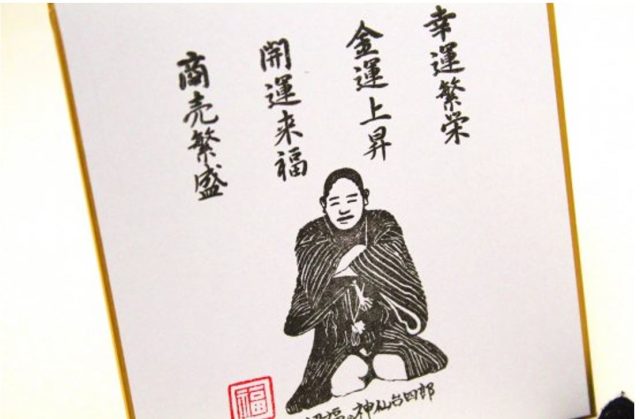 幸運繁栄
金運上昇
開運来福
商売繁盛
福の神仙台四郎
福